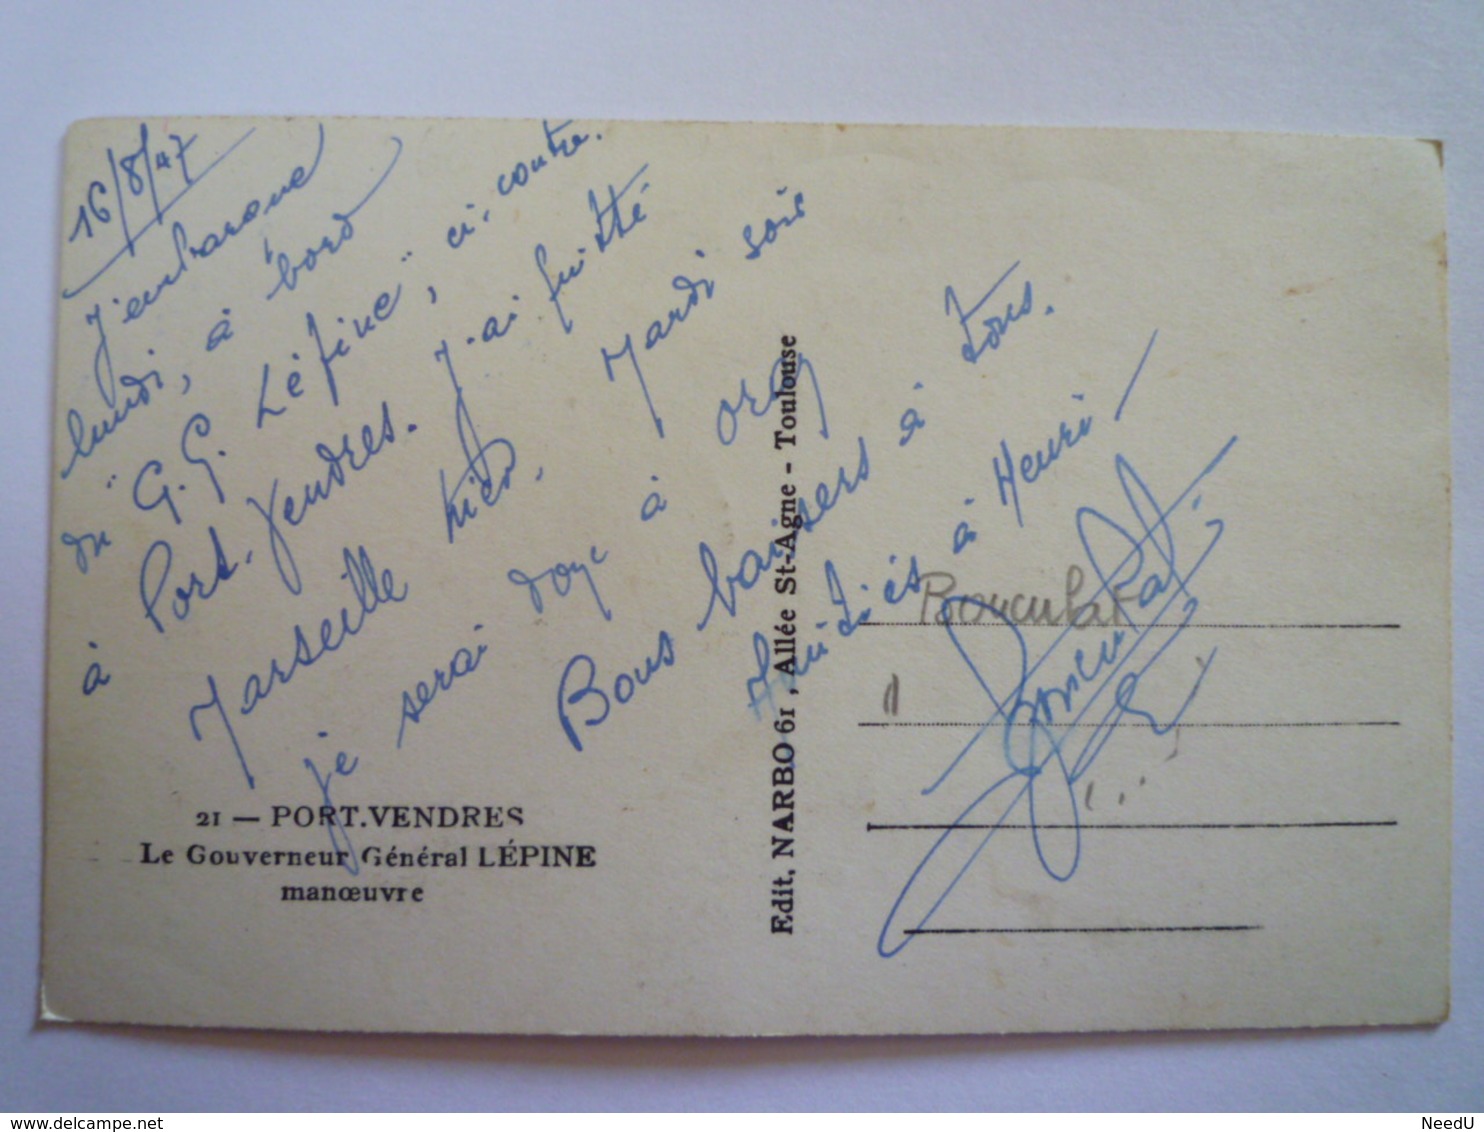 16/8/47
J'embarque
lundi, à bord
du "G. G. Lépine", ci-contre.
à Port-Vendres. J'ai quitté
Marseille hier. Mardi soir
je serai donc à Oran
Bons baisers à tous.
Amitiés à Henri -
Bonculat
21 — PORT-VENDRES
Le Gouverneur Général LÉPINE
manœuvre
Edit. NARBO 61, Allée St-Agne - Toulouse
NeedU